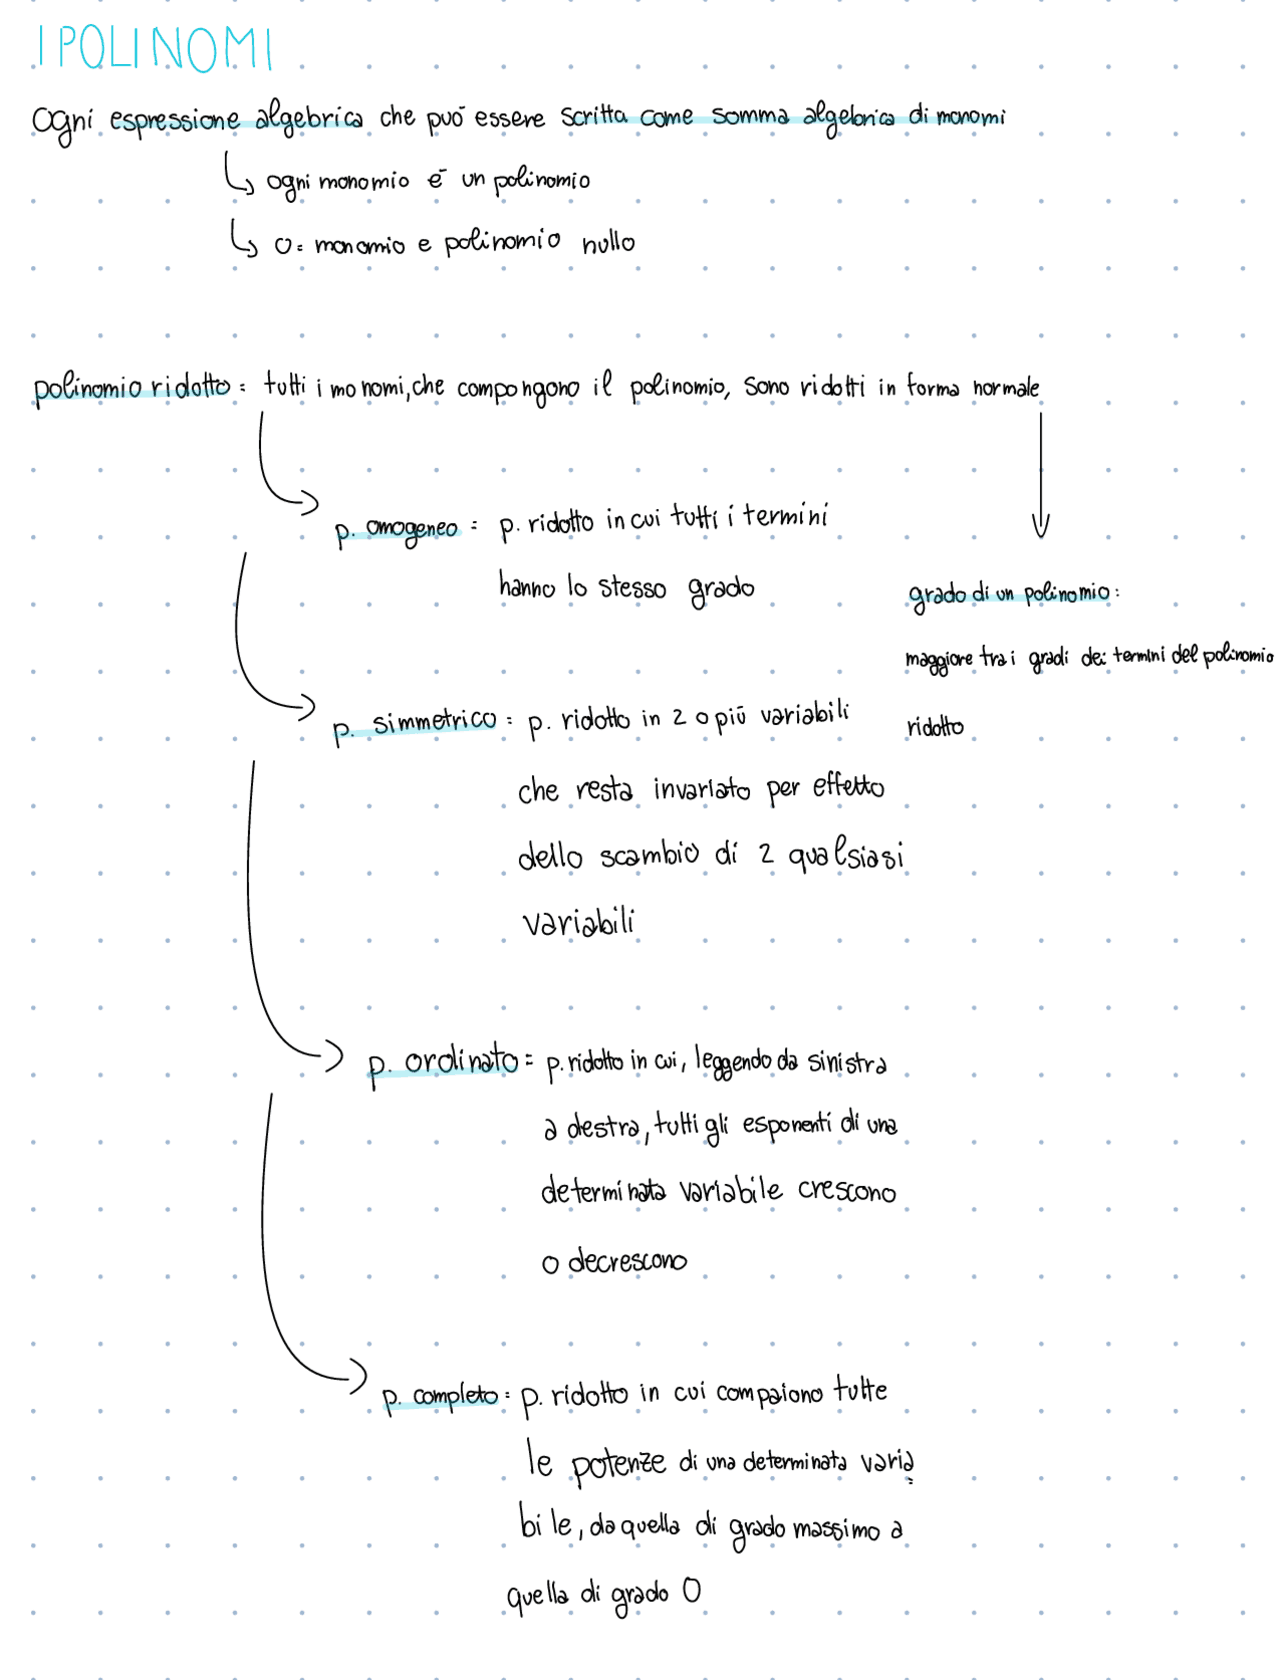 I POLINOMI
Ogni espressione algebrica che può essere scritta come somma algebrica di monomi
ogni monomio è un polinomio
0= monomio e polinomio nullo
polinomio ridotto = tutti i monomi, che compongono il polinomio, sono ridotti in forma normale
p. omogeneo = p. ridotto in cui tutti i termini
hanno lo stesso grado
grado di un polinomio:
maggiore tra i gradi dei termini del polinomio
ridotto
p. simmetrico = p. ridotto in 2 o più variabili
che resta invariato per effetto
dello scambio di 2 qualsiasi
variabili
p. ordinato = p. ridotto in cui, leggendo da sinistra
a destra, tutti gli esponenti di una
determinata variabile crescono
o decrescono
p. completo = p. ridotto in cui compaiono tutte
le potenze di una determinata varia
bile, da quella di grado massimo a
quella di grado 0